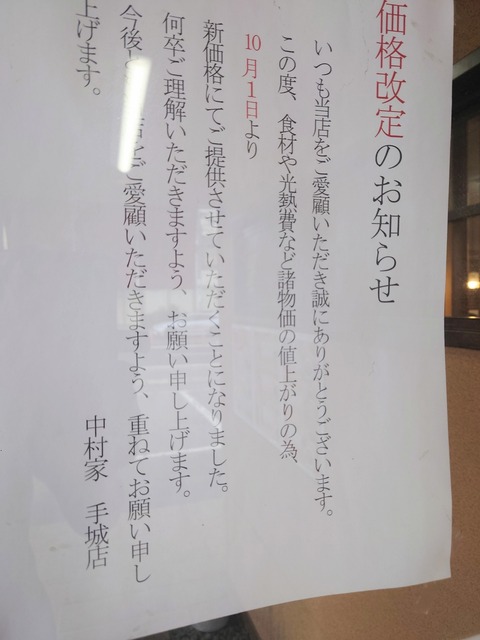 価格改定のお知らせ
いつも当店をご愛顧いただき誠にありがとうございます。
この度、食材や光熱費など諸物価の値上がりの為、
10月1日より
新価格にてご提供させていただくことになりました。
何卒ご理解いただきますよう、お願い申し上げます。
今後とご愛顧いただきますよう、重ねてお願い申し
上げます。
中村家 手城店